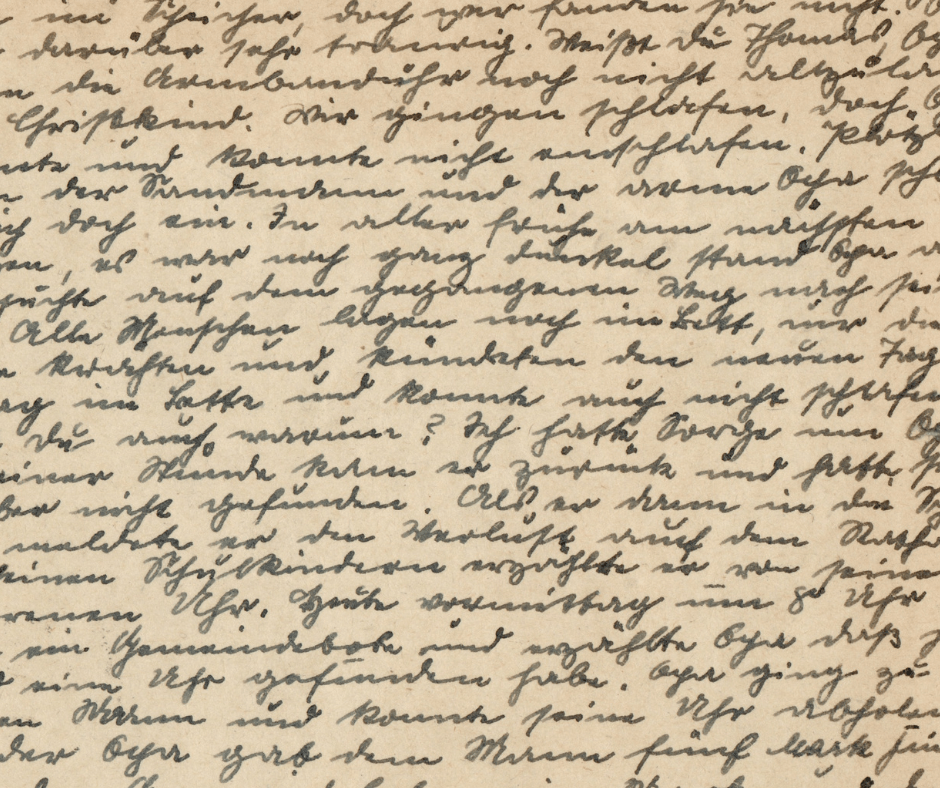 im Speicher, doch wir fanden sie nicht.
darüber sehr traurig. Weißt du Thomas, Op
n die Armbanduhr noch nicht allzula
Christkind. Wir gingen schlafen, doch O
nte und konnte nicht einschlafen. Plötz
n der Sandmann und der arme Opa schl
ich doch ein. In aller frühe am nächsten
en, es war noch ganz dunkel stand Opa a
suchte auf dem gegangenen Weg nach sei
Alle Menschen lagen noch im Bett, nur di
e krähten und kündeten den neuen Tag
ag im Bette und konnte auch nicht schlafen
du auch warum? Ich hatte Sorge um Op
einer Stunde kam er zurück und hatte
ber nicht gefunden. Als er dann in die S
meldete er den Verlust auch dem Ratha
einen Schulkindern erzählte er von seine
renen Uhr. Heute vormittag um 8 Uhr
ein Gemeindebote und erzählte Opa daß
eine Uhr gefunden habe. Opa ging zu
en Mann und konnte seine Uhr abholen
der Opa gab dem Mann fünf Mark